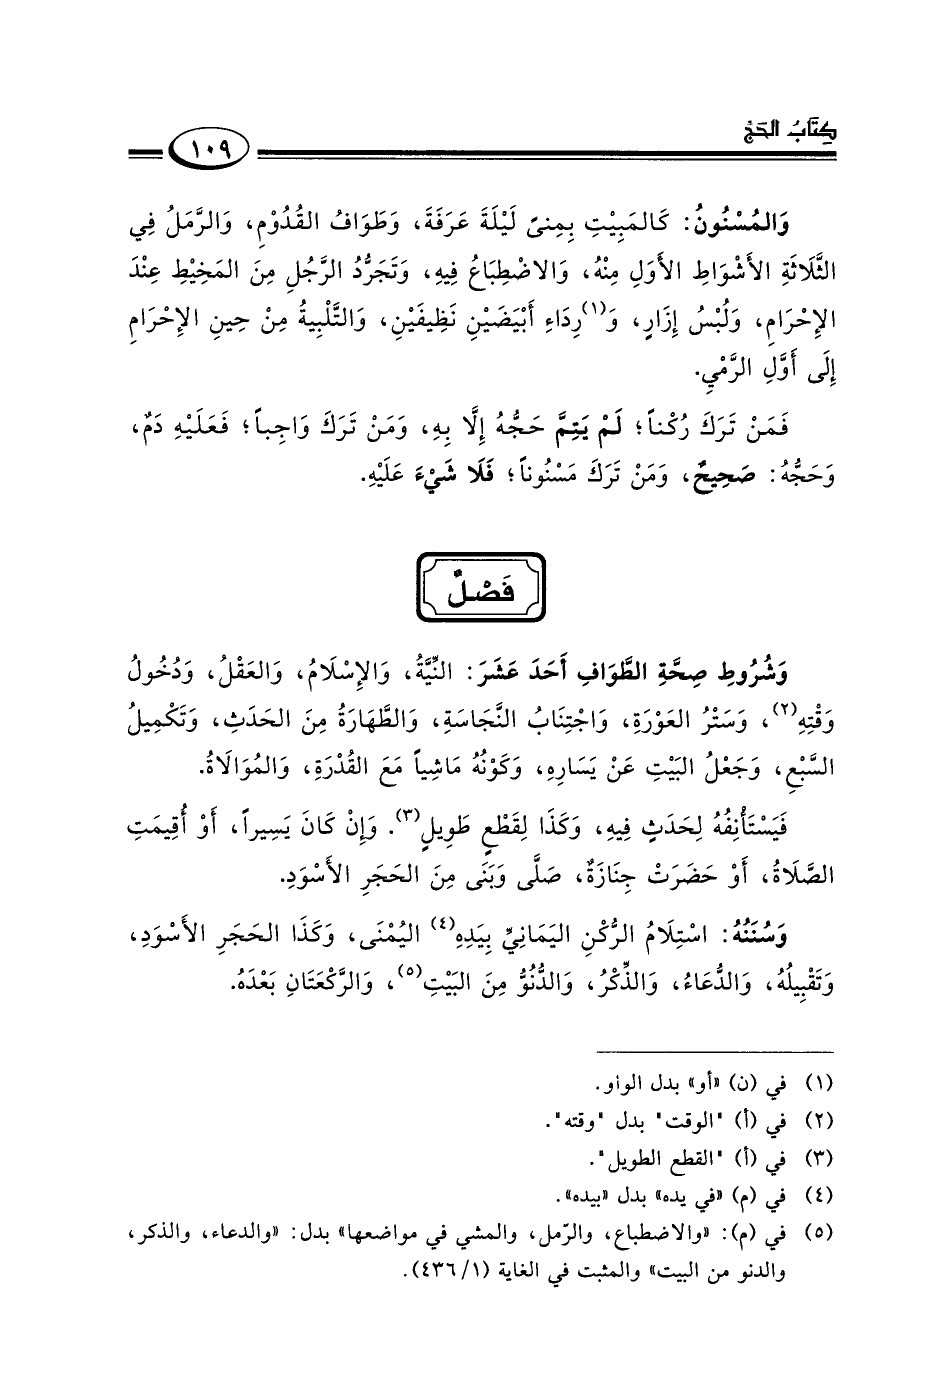 كِتَابُ الحَجِّ
١٠٩
وَالمُسْنُونُ: كَالمَبِيْتِ بِمِنىً لَيْلَةَ عَرَفَةَ، وَطَوَافُ القُدُوْمِ، وَالرَّمَلُ فِي
الثَّلَاثَةِ الأَشْوَاطِ الأَوَلِ مِنْهُ، وَالاضْطِبَاعُ فِيهِ، وَتَجَرُّدُ الرَّجُلِ مِنَ المَخِيْطِ عِنْدَ
الإِحْرَامِ، وَلُبْسُ إِزَارٍ، وَ(١)رِدَاءِ أَبْيَضَيْنِ نَظِيفَيْنِ، وَالتَّلْبِيةُ مِنْ حِينِ الإِحْرَامِ
إِلَى أَوَّلِ الرَّمْيِ.
فَمَنْ تَرَكَ رُكْناً؛ لَمْ يَتِمَّ حَجُّهُ إِلَّا بِهِ، وَمَنْ تَرَكَ وَاجِباً؛ فَعَلَيْهِ دَمٌ،
وَحَجُّهُ: صَحِيحٌ، وَمَنْ تَرَكَ مَسْنُوناً؛ فَلَا شَيْءَ عَلَيْهِ.
فَصْلٌ
وَشُرُوطِ صِحَّةِ الطَّوَافِ أَحَدَ عَشَرَ: النِّيَّةُ، وَالإِسْلَامُ، وَالعَقْلُ، وَدُخُولُ
وَقْتِهِ(٢)، وَسَتْرُ العَوْرَةِ، وَاجْتِنَابُ النَّجَاسَةِ، وَالطَّهَارَةُ مِنَ الحَدَثِ، وَتَكْمِيلُ
السَّبْعِ، وَجَعْلُ البَيْتِ عَنْ يَسَارِهِ، وَكَوْنُهُ مَاشِياً مَعَ القُدْرَةِ، وَالمُوَالَاةُ.
فَيَسْتَأْنِفُهُ لِحَدَثٍ فِيهِ، وَكَذَا لِقَطْعٍ طَوِيلٍ(٣). وَإِنْ كَانَ يَسِيراً، أَوْ أُقِيمَتِ
الصَّلَاةُ، أَوْ حَضَرَتْ جِنَازَةٌ، صَلَّى وَبَنَى مِنَ الحَجَرِ الأَسْوَدِ.
وَسُنَنُهُ: اسْتِلَامُ الرُّكْنِ اليَمَانِيِّ بِيَدِهِ(٤) اليُمْنَى، وَكَذَا الحَجَرِ الأَسْوَدِ،
وَتَقْبِيلُهُ، وَالدُّعَاءُ، وَالذِّكْرُ، وَالدُّنُوُّ مِنَ البَيْتِ(٥)، وَالرَّكْعَتَانِ بَعْدَهُ.
(١) في (ن) «أو» بدل الواو.
(٢) في (أ) "الوقت" بدل "وقته".
(٣) في (أ) "القطع الطويل".
(٤) في (م) «في يده» بدل «بيده».
(٥) في (م): «والاضطباع، والرّمل، والمشي في مواضعها» بدل: «والدعاء، والذكر،
والدنو من البيت» والمثبت في الغاية (٤٣٦/١).